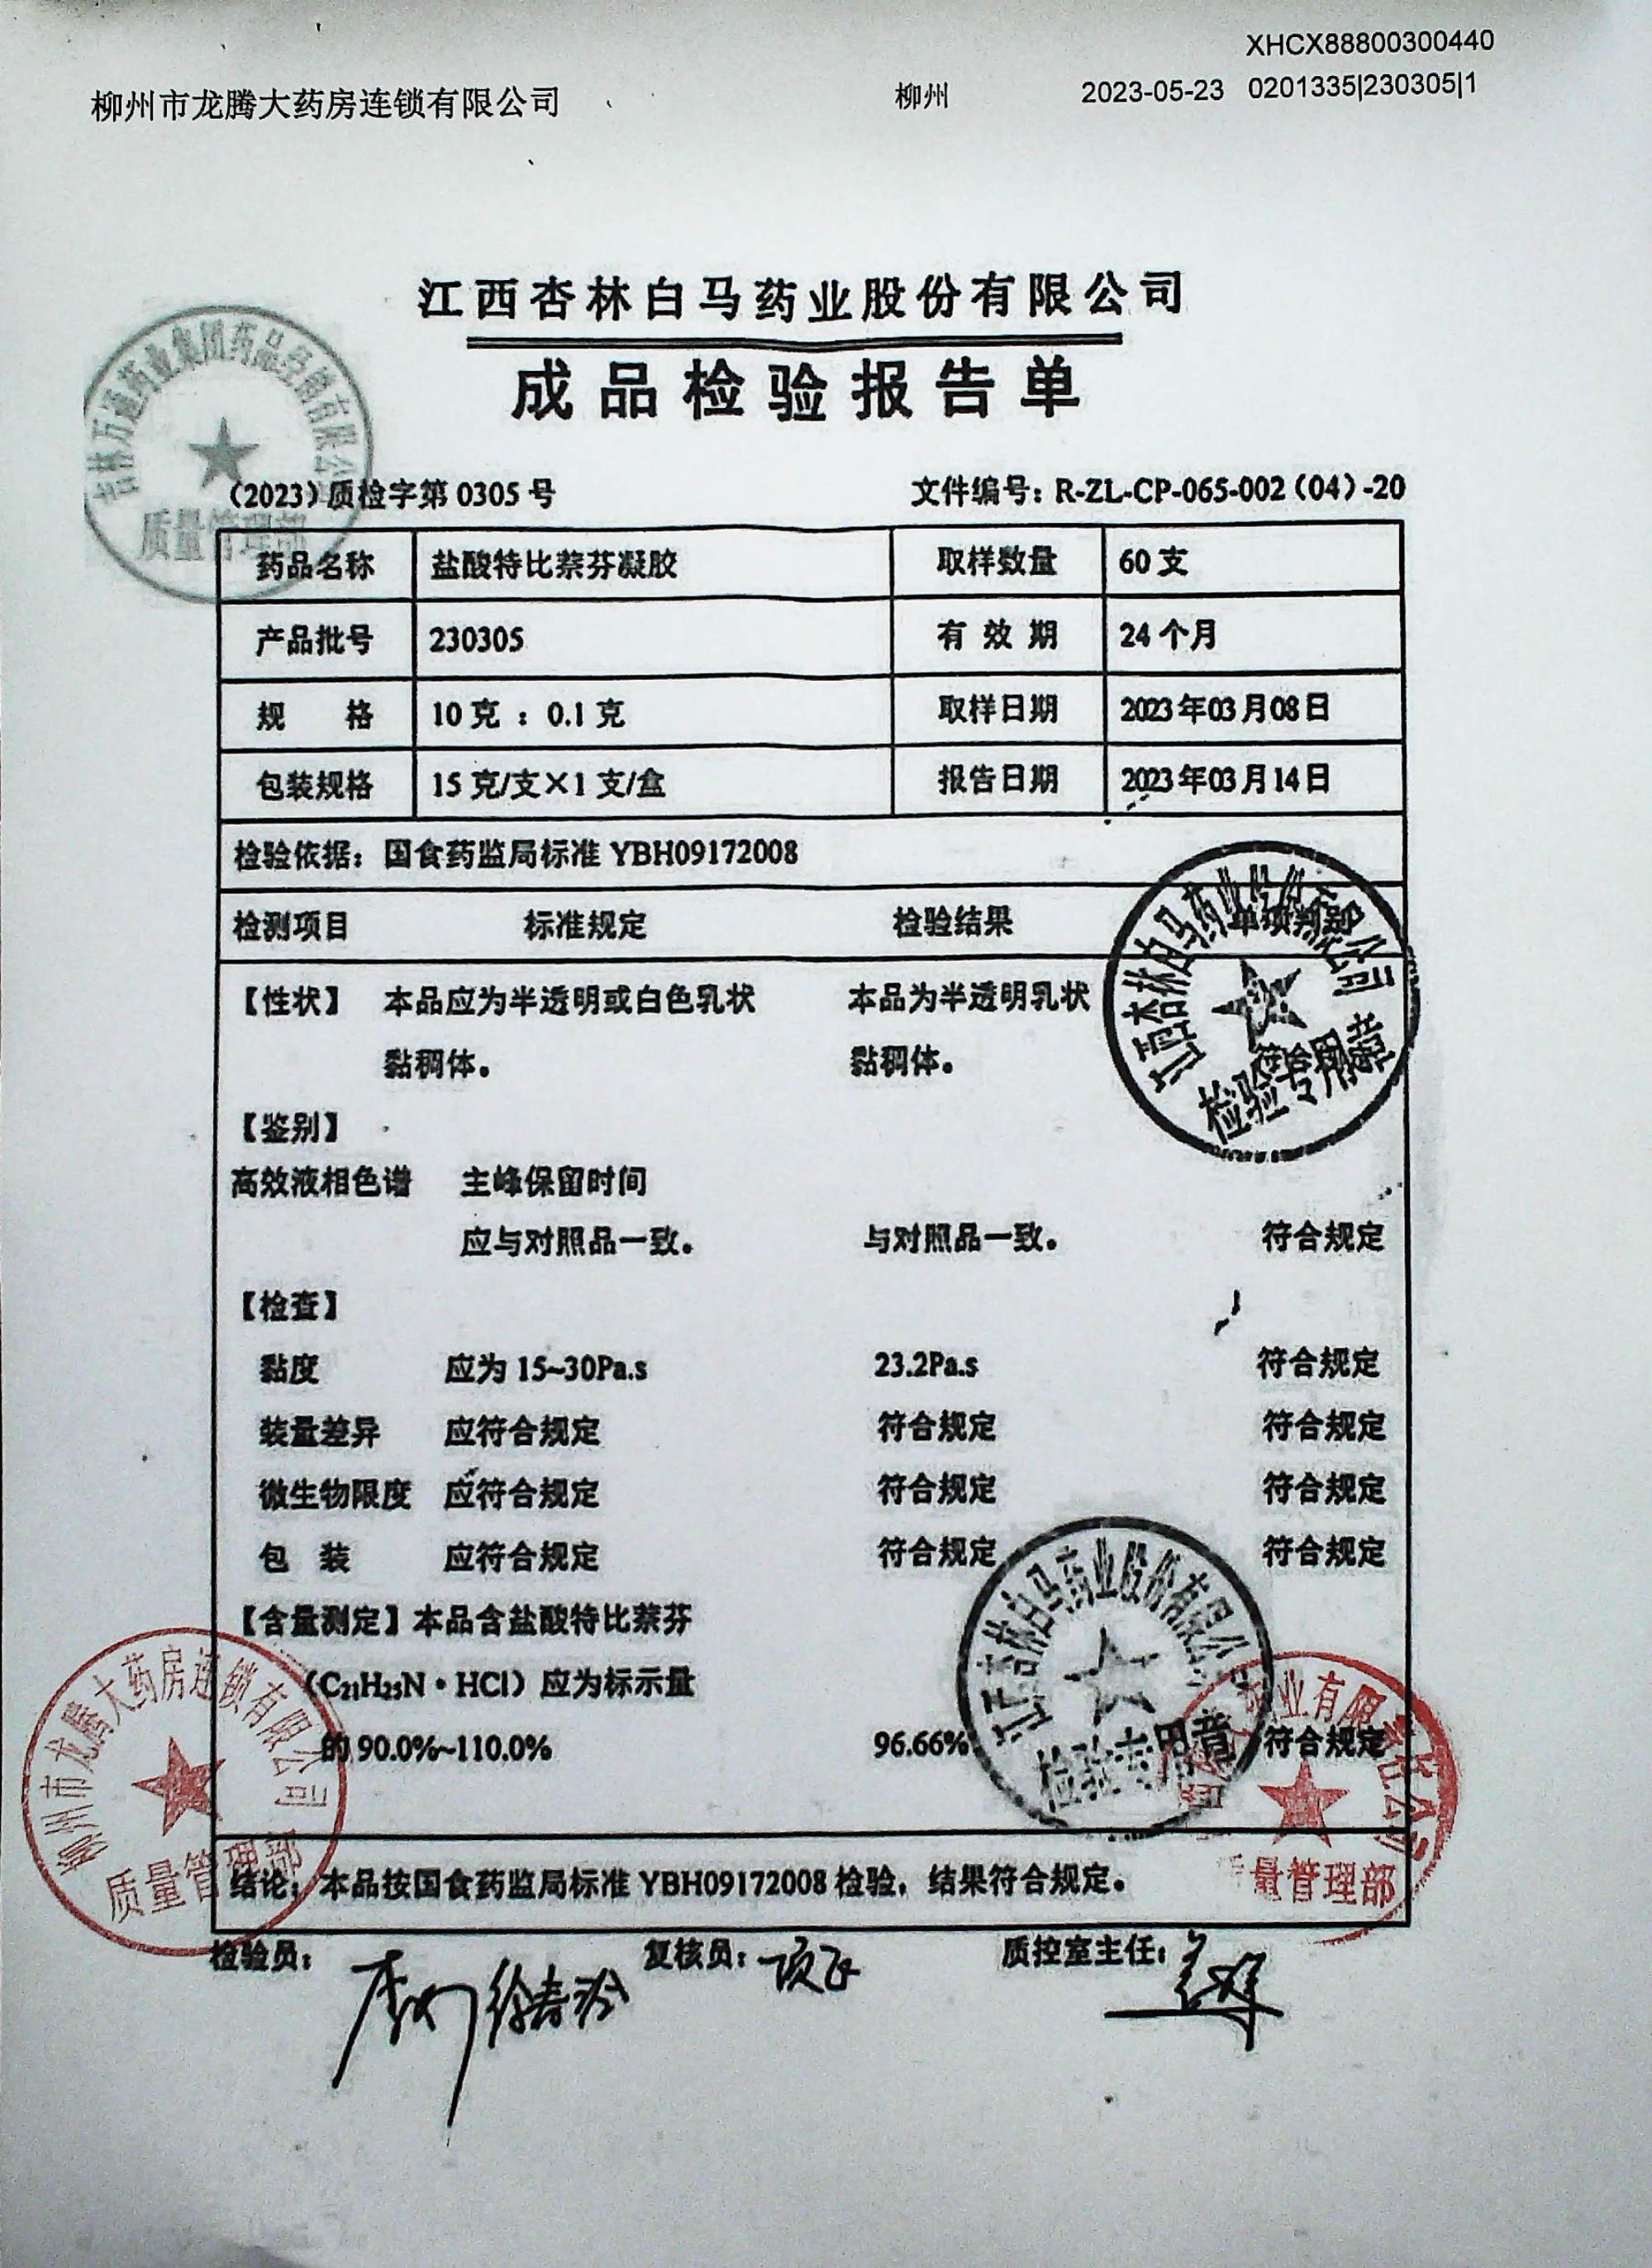 XHCX88800300440
柳州市龙腾大药房连锁有限公司 柳州 2023-05-23 0201335|230305|1
江西杏林白马药业股份有限公司
成品检验报告单
吉林万通药业集团药品经销有限公司
质量管理部
(2023)质检字第 0305 号 文件编号: R-ZL-CP-065-002(04)-20
药品名称 盐酸特比萘芬凝胶 取样数量 60 支
产品批号 230305 有 效 期 24 个月
规 格 10 克 : 0.1 克 取样日期 2023 年 03 月 08 日
包装规格 15 克/支×1 支/盒 报告日期 2023 年 03 月 14 日
检验依据: 国食药监局标准 YBH09172008
检测项目 标准规定 检验结果 单项判别
【性状】 本品应为半透明或白色乳状 本品为半透明乳状
黏稠体。 黏稠体。 符合规定
江西杏林白马药业股份有限公司
检验专用章
【鉴别】
高效液相色谱 主峰保留时间
应与对照品一致。 与对照品一致。 符合规定
【检查】
黏度 应为 15~30Pa.s 23.2Pa.s 符合规定
装量差异 应符合规定 符合规定 符合规定
微生物限度 应符合规定 符合规定 符合规定
包 装 应符合规定 符合规定 符合规定
【含量测定】本品含盐酸特比萘芬
(C₂₁H₂₅N·HCl)应为标示量
的 90.0%~110.0% 96.66% 符合规定
江西杏林白马药业股份有限公司
检验专用章
柳州市龙腾大药房连锁有限公司
质量管理部
业有限
质量管理部
结论: 本品按国食药监局标准 YBH09172008 检验, 结果符合规定。
检验员: 复核员: 项飞 质控室主任: